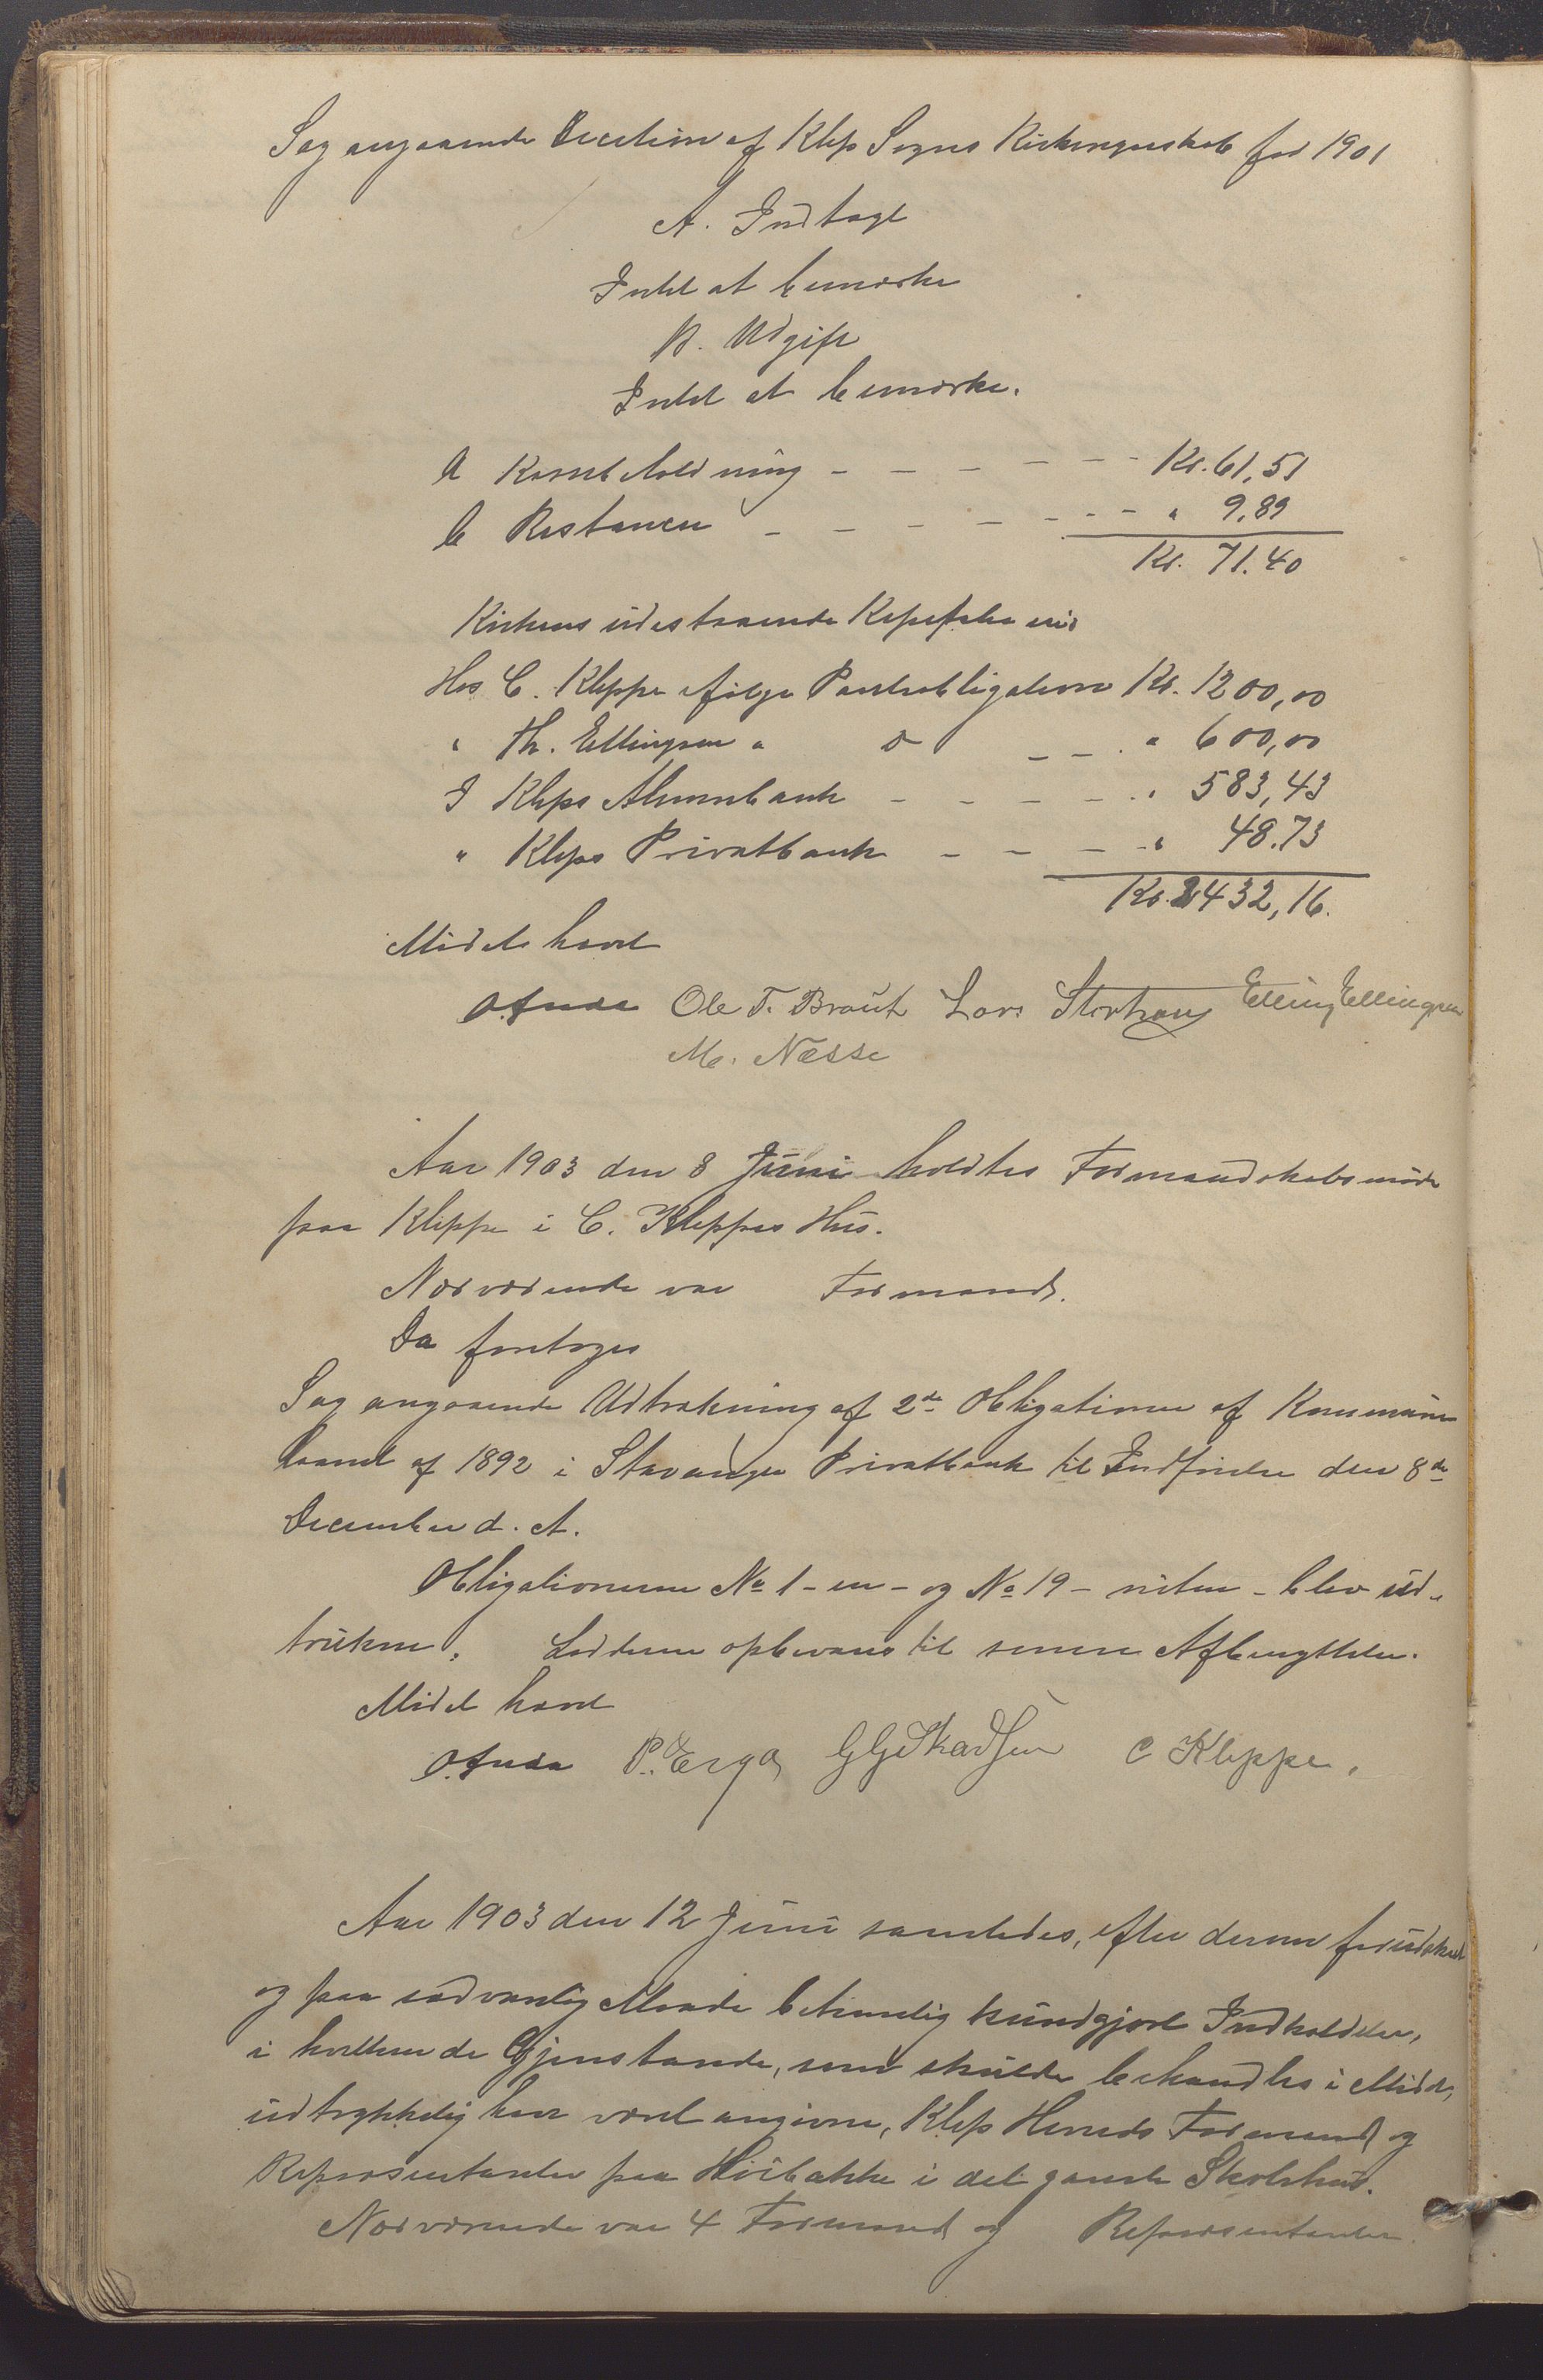 Sag angaaende Decition af Klep Sogns Kirkeregnskab for 1901
A. Indtægt
Intet at bemærke
B. Udgift
Intet at bemærke.
a Kassebeholdning - - - - - - Kr. 61,51
b Restancer - - - - - - - " 9,89
Kr. 71.40
Kirkens udestaaende Kapitaler
Hos C. Kleppe ifølge Pantobligation Kr. 1200,00
" Th. Ellingsen " do - - " 600,00
I Kleps Almuebank - - - - - " 583,43
" Kleps Privatbank - - - - " 48.73
Kr. 2432,16.
Mødet hævet
O. Ole T. Braut Lars Storhaug Elling Ellingsen
M. Næsse
Aar 1903 den 8 Juni holdtes Formandskabsmøde
paa Kleppe i C. Kleppes Hus.
Nærværende var Formænd.
Da foretoges
Sag angaaende Udtrækning af 2de Obligationer af Kommune
laanet af 1892 i Stavanger Privatbank til Indfrielse den 8de
December d. A.
Obligationerne No 1 - en - og No 19 - nitten - blev ud-
trukne. Lodderne opbevares til senere Afbenyttelse.
Mødet hævet
O. P. Erga G G Skadsem C Kleppe.
Aar 1903 den 12 Juni samledes, efter dertil forudskeet
og paa sædvanlig Maade betimelig kundgjort Indkaldelse,
i hvilken de Gjenstande, som skulde behandles i Mødet,
udtrykkelig have været angivne, Klep Herreds Formænd og
Repræsentanter paa Huibakke i det gamle Skolehus.
Nærværende var 4 Formænd og Repræsentanter.